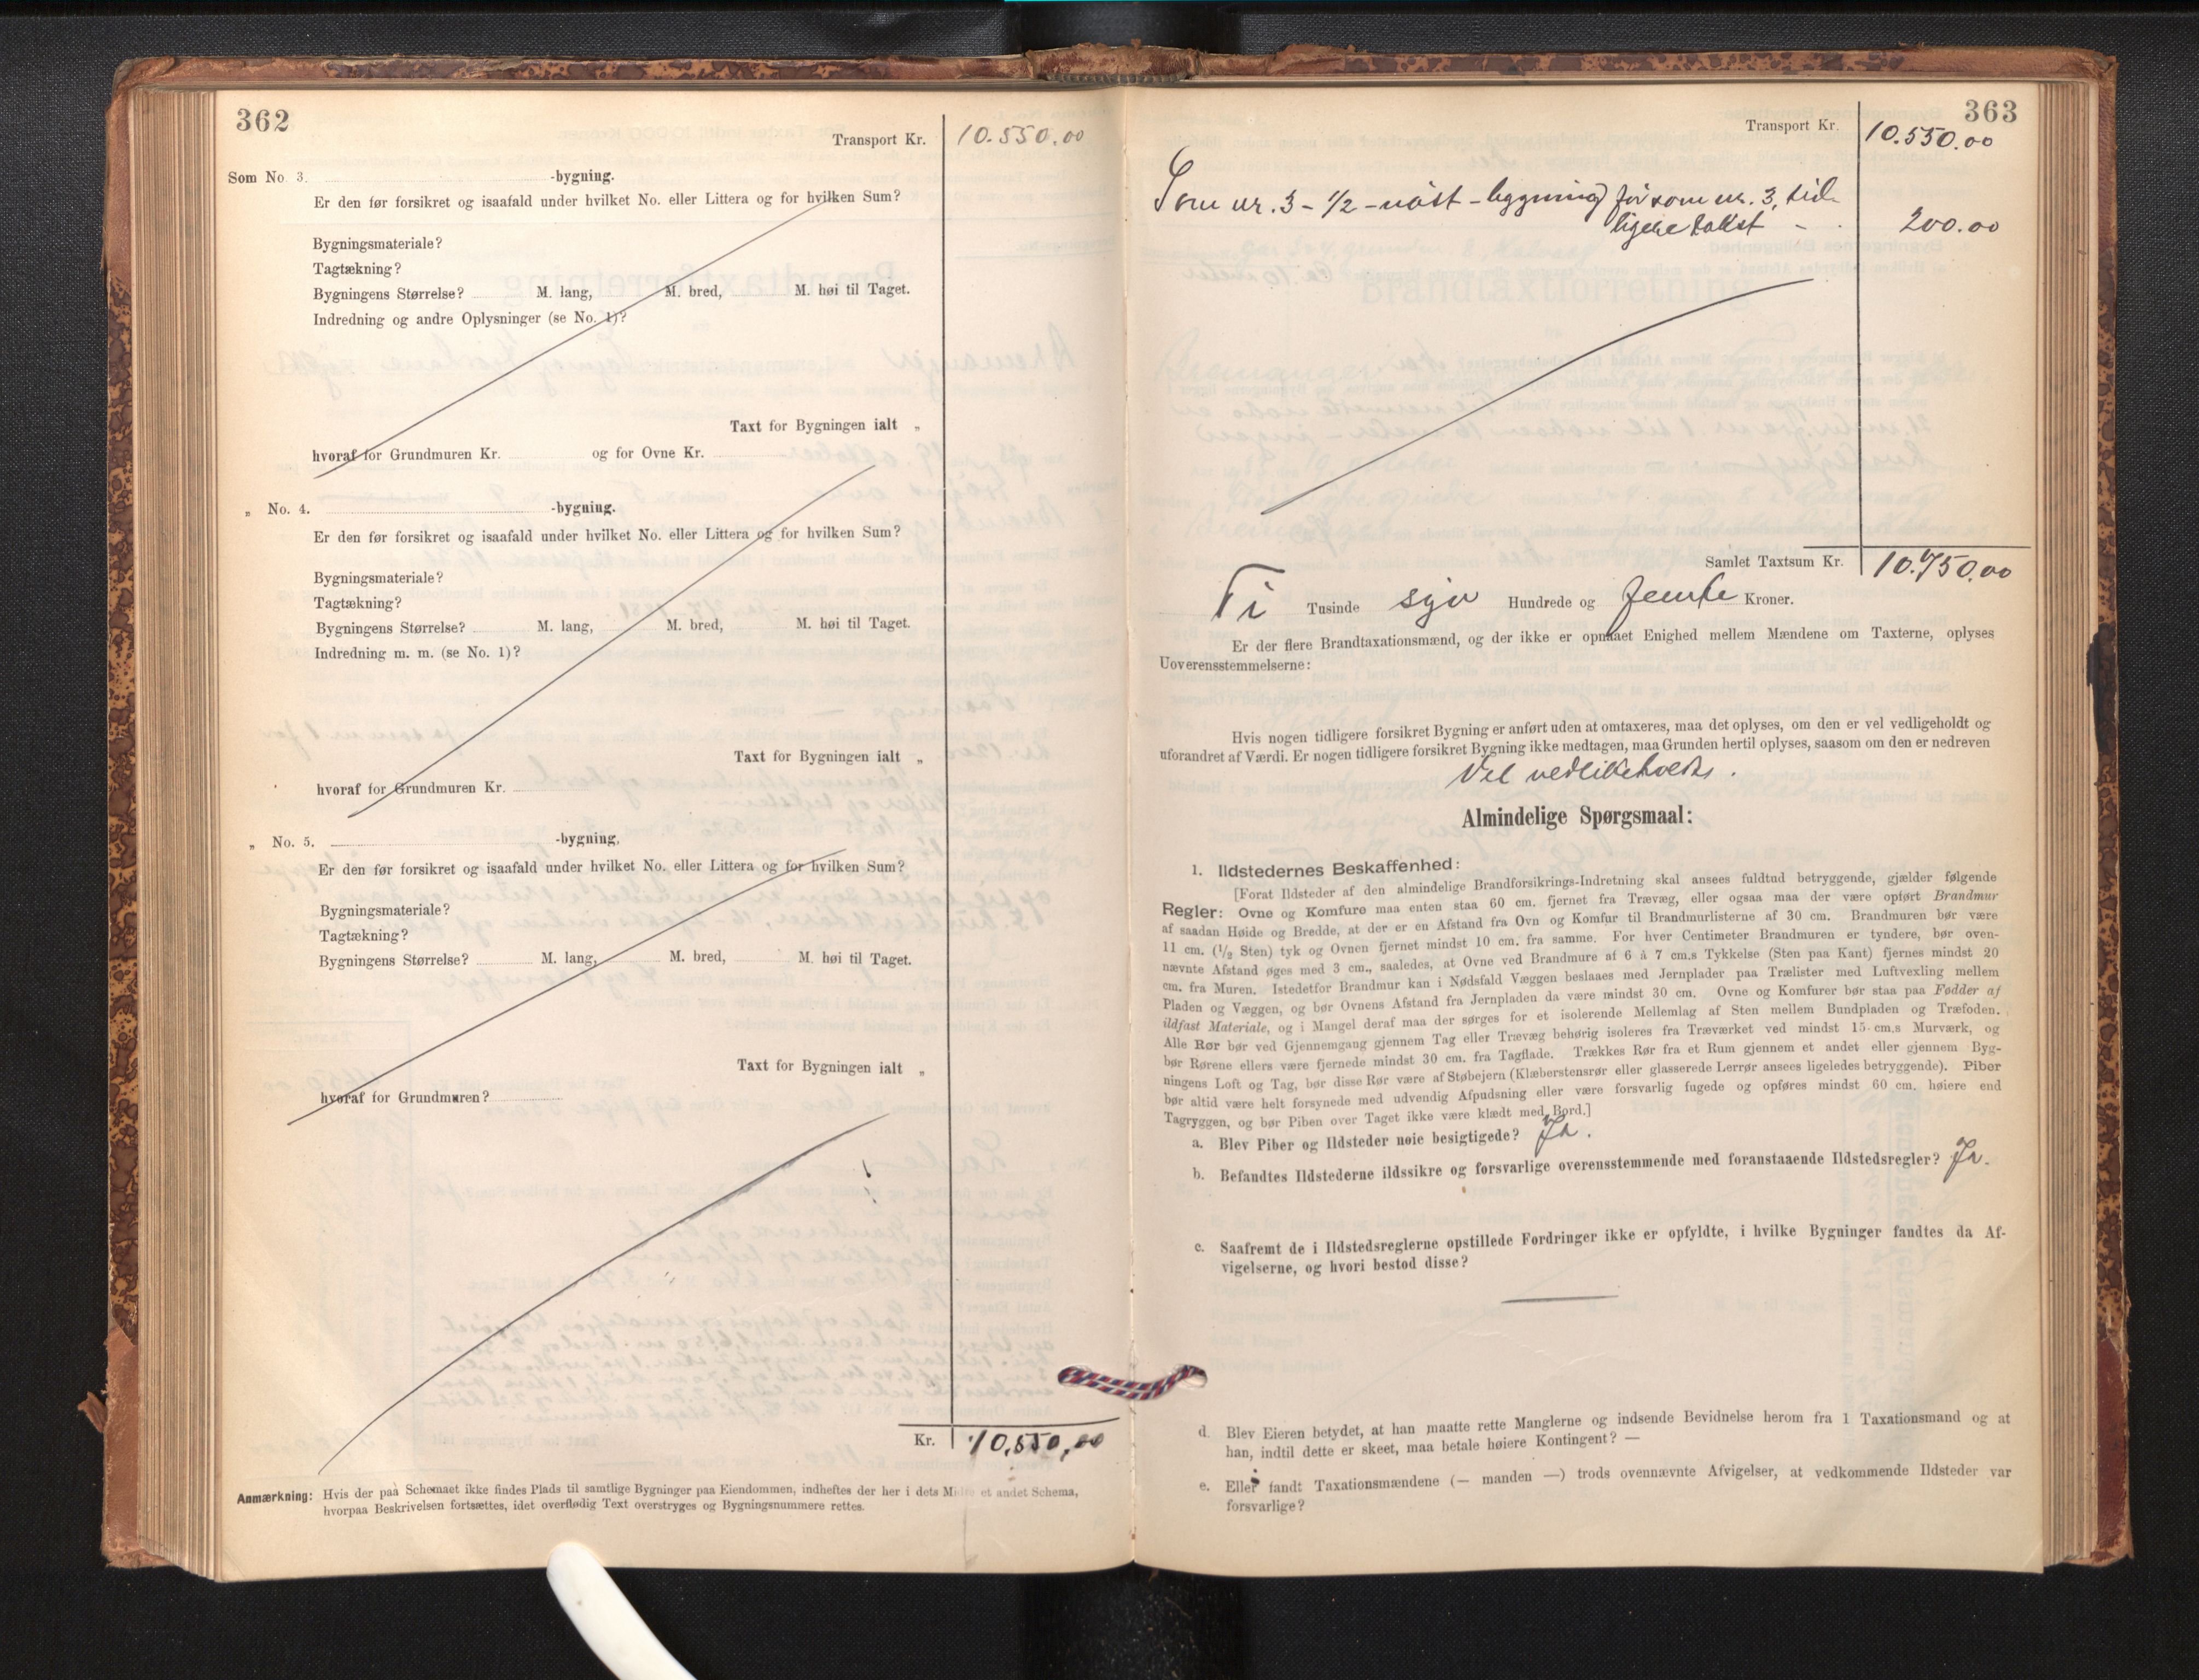 362
Transport Kr. 10.550.00
Som No. 3. -bygning.
Er den før forsikret og isaafald under hvilket No. eller Littera og for hvilken Sum?
Bygningsmateriale?
Tagtækning?
Bygningens Størrelse? M. lang, M. bred, M. høi til Taget.
Indredning og andre Oplysninger (se No. 1)?
Taxt for Bygningen ialt „
hvoraf for Grundmuren Kr. og for Ovne Kr.
„ No. 4. -bygning.
Er den før forsikret og isaafald under hvilket No. eller Littera og for hvilken Sum?
Bygningsmateriale?
Tagtækning?
Bygningens Størrelse? M. lang, M. bred, M. høi til Taget.
Indredning m. m. (se No. 1)?
Taxt for Bygningen ialt „
hvoraf for Grundmuren Kr.
„ No. 5. -bygning,
Er den før forsikret og isaafald under hvilket No. eller Littera og for hvilken Sum?
Bygningsmateriale?
Tagtækning?
Bygningens Størrelse? M. lang, M. bred, M. høi til Taget.
Taxt for Bygningen ialt „
hvoraf for Grundmuren?
Kr. 10,550,00
Anmærkning: Hvis der paa Schemaet ikke findes Plads til samtlige Bygninger paa Eiendommen, indheftes der her i dets Midte et andet Schema,
hvorpaa Beskrivelsen fortsættes, idet overflødig Text overstryges og Bygningsnummere rettes.
363
Transport Kr. 10.550.00
Som nr. 3 - 1/2 - nöst - bygning før som nr. 3, tid-
ligere takst - . 200.00
Samlet Taxtsum Kr. 10.750.00
Ti Tusinde syv Hundrede og femti Kroner.
Er der flere Brandtaxationsmænd, og der ikke er opnaaet Enighed mellem Mændene om Taxterne, oplyses
Uoverensstemmelserne:
Hvis nogen tidligere forsikret Bygning er anført uden at omtaxeres, maa det oplyses, om den er vel vedligeholdt og
uforandret af Værdi. Er nogen tidligere forsikret Bygning ikke medtagen, maa Grunden hertil oplyses, saasom om den er nedreven
Vel vedlikeholdt.
Almindelige Spørgsmaal:
1. Ildstedernes Beskaffenhed:
[Forat Ildsteder af den almindelige Brandforsikrings-Indretning skal ansees fuldtud betryggende, gjælder følgende
Regler: Ovne og Komfure maa enten staa 60 cm. fjernet fra Trævæg, eller ogsaa maa der være opført Brandmur
af saadan Høide og Bredde, at der er en Afstand fra Ovn og Komfur til Brandmurlisterne af 30 cm. Brandmuren bør være
11 cm. (1/2 Sten) tyk og Ovnen fjernet mindst 10 cm. fra samme. For hver Centimeter Brandmuren er tyndere, bør oven-
nævnte Afstand øges med 3 cm., saaledes, at Ovne ved Brandmure af 6 à 7 cm.s Tykkelse (Sten paa Kant) fjernes mindst 20
cm. fra Muren. Istedetfor Brandmur kan i Nødsfald Væggen beslaaes med Jernplader paa Trælister med Luftvexling mellem
Pladen og Væggen, og bør Ovnens Afstand fra Jernpladen da være mindst 30 cm. Ovne og Komfurer bør staa paa Fødder af
ildfast Materiale, og i Mangel deraf maa der sørges for et isolerende Mellemlag af Sten mellem Bundpladen og Træfoden.
Alle Rør bør ved Gjennemgang gjennem Tag eller Trævæg behørig isoleres fra Træværket ved mindst 15 cm.s Murværk, og
bør Rørene ellers være fjernede mindst 30 cm. fra Tagflade. Trækkes Rør fra et Rum gjennem et andet eller gjennem Byg-
ningens Loft og Tag, bør disse Rør være af Støbejern (Klæberstensrør eller glasserede Lerrør ansees ligeledes betryggende). Piber
bør altid være helt forsynede med udvendig Afpudsning eller være forsvarlig fugede og opføres mindst 60 cm. høiere end
Tagryggen, og bør Piben over Taget ikke være klædt med Bord.]
a. Blev Piber og Ildsteder nøie besigtigede? Ja.
b. Befandtes Ildstederne ildssikre og forsvarlige overensstemmende med foranstaaende Ildstedsregler? Ja.
c. Saafremt de i Ildstedsreglerne opstillede Fordringer ikke er opfyldte, i hvilke Bygninger fandtes da Af-
vigelserne, og hvori bestod disse?
d. Blev Eieren betydet, at han maatte rette Manglerne og indsende Bevidnelse herom fra 1 Taxationsmand og at
han, indtil dette er skeet, maa betale høiere Kontingent? —
e. Eller fandt Taxationsmændene (— manden —) trods ovennævnte Afvigelser, at vedkommende Ildsteder var
forsvarlige?